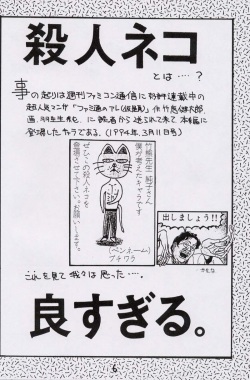 殺人ネコ
とは‥‥？
事の起りは週刊ファミコン通信に好評連載中の
超人気マンガ「ファミ通のアレ(仮題)」作竹熊健太郎
画.羽生生純.に読者から送られて来て本編に
登場したキャラである。(1994年.3月11日号)
竹熊先生 純子さん
僕が考えたキャラです
ぜひこの殺人ネコを
登場させて下さい。お願いします。
(ペンネーム)
プチワラ
出しましょう!!
これを見て我々は思った‥‥.
良すぎる。
6